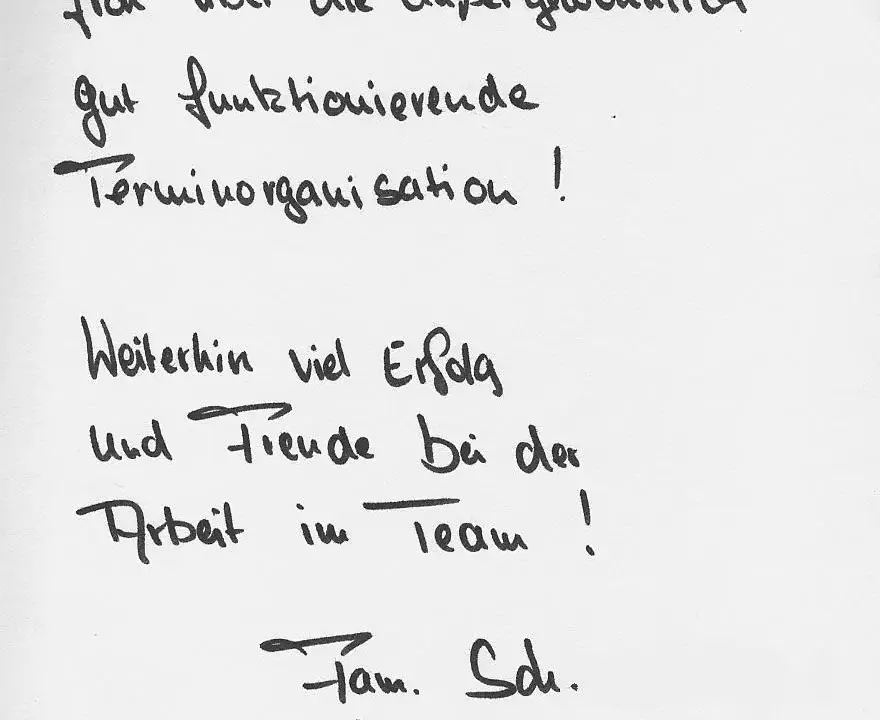 über die außergewöhnlich
gut funktionierende
Terminorganisation !
Weiterhin viel Erfolg
und Freude bei der
Arbeit im Team !
Fam. Sch.